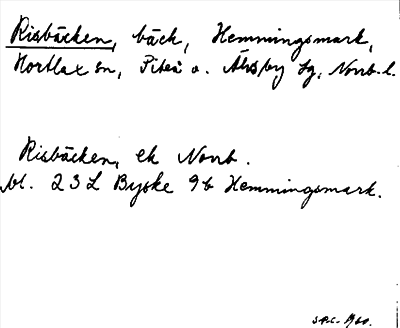 Risbäcken, bäck, Hemmingsmark,
Hortlax sn, Piteå o. Älvsby tg, Norrb. l.
Risbäcken, ek Norrb.
bl. 23L Byske 9b Hemmingsmark.